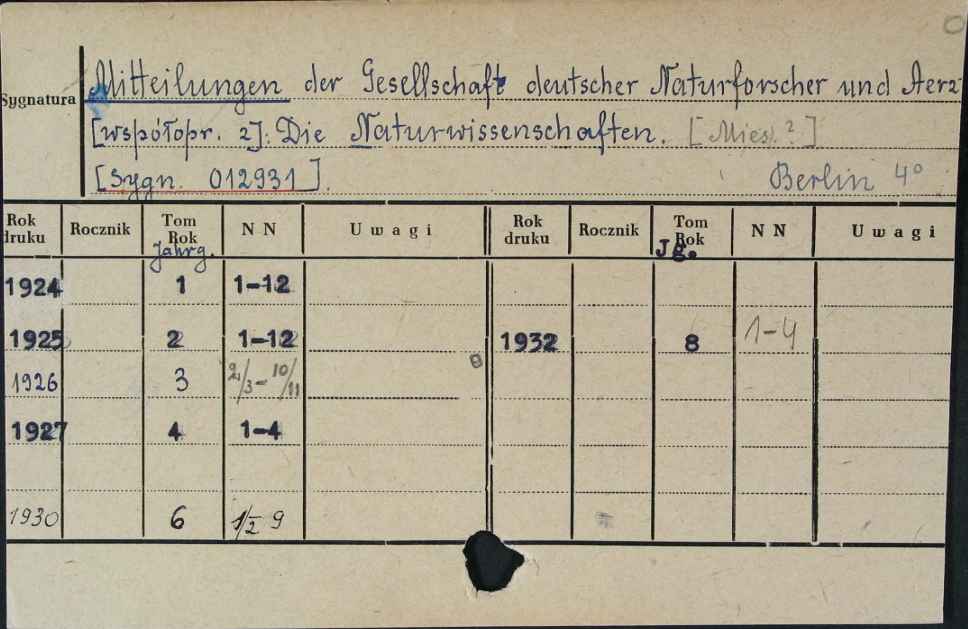 Mitteilungen der Gesellschaft deutscher Naturforscher und Aerz
Sygnatura
[współopr. 2]: Die Naturwissenschaften. [Mies. ?]
[Sygn. 012931].
Berlin 4°
Rok druku Rocznik Tom Rok Jahrg. N N Uwagi Rok druku Rocznik Tom Rok Jg. N N Uwagi
1924 1 1-12
1925 2 1-12 1932 8 1-4
1926 3 2/3-10/11
1927 4 1-4
1930 6 1/2 9